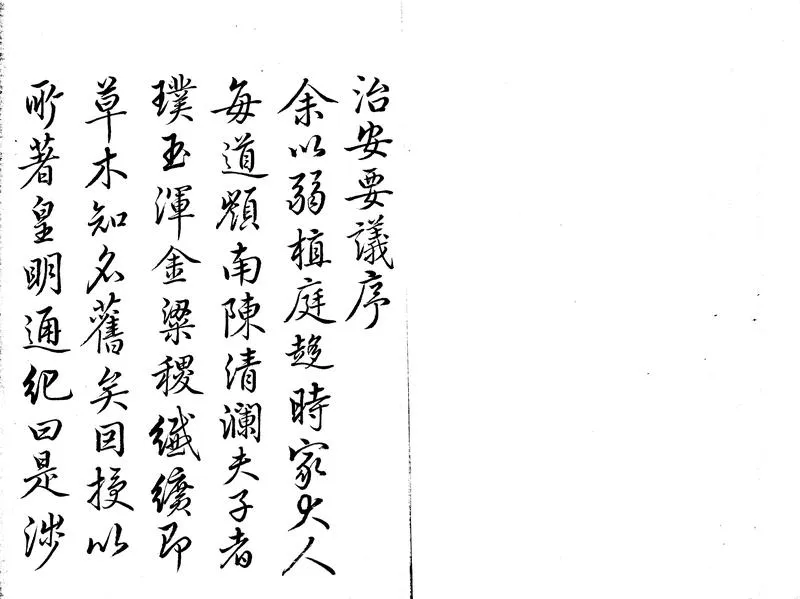 治安要議序
余以弱植庭趍時家大人
每道嶺南陳清瀾夫子者
璞玉渾金粱稷纖纊即
草木知名舊矣因授以
所著皇明通紀曰是渉